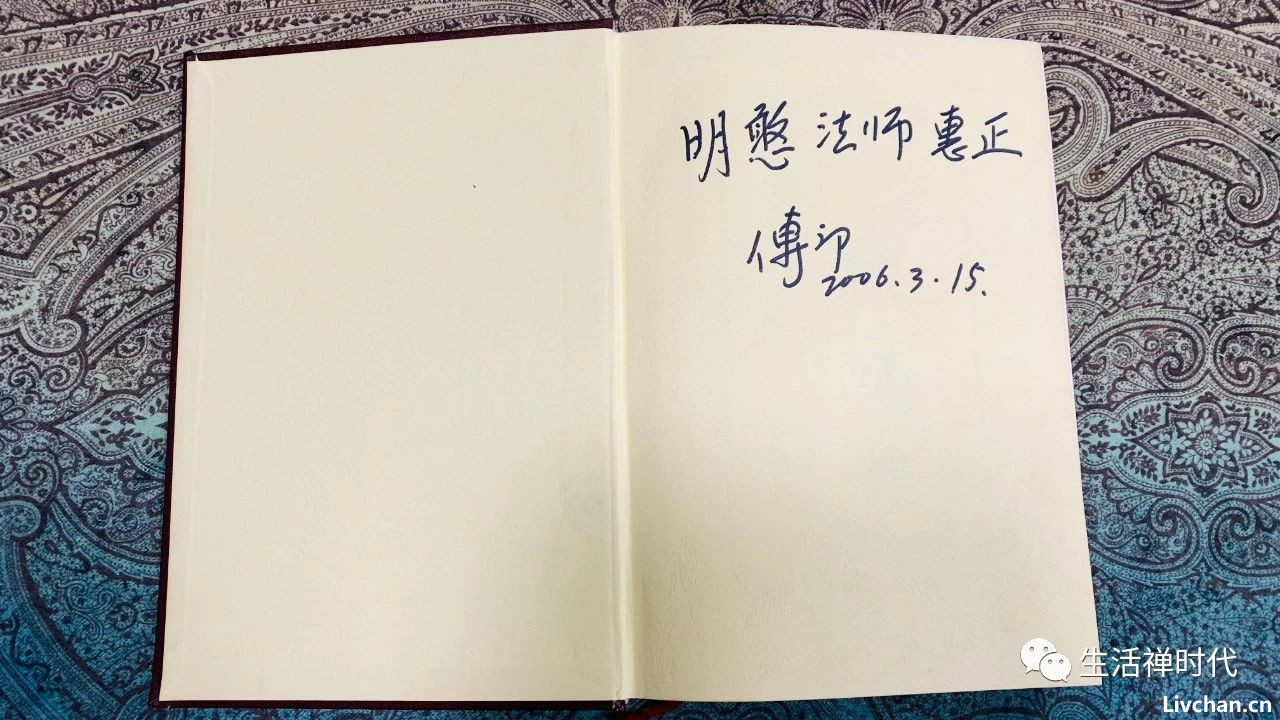 明憨法师惠正
傳印
2006.3.15.
生活禅时代
Livchan.cn